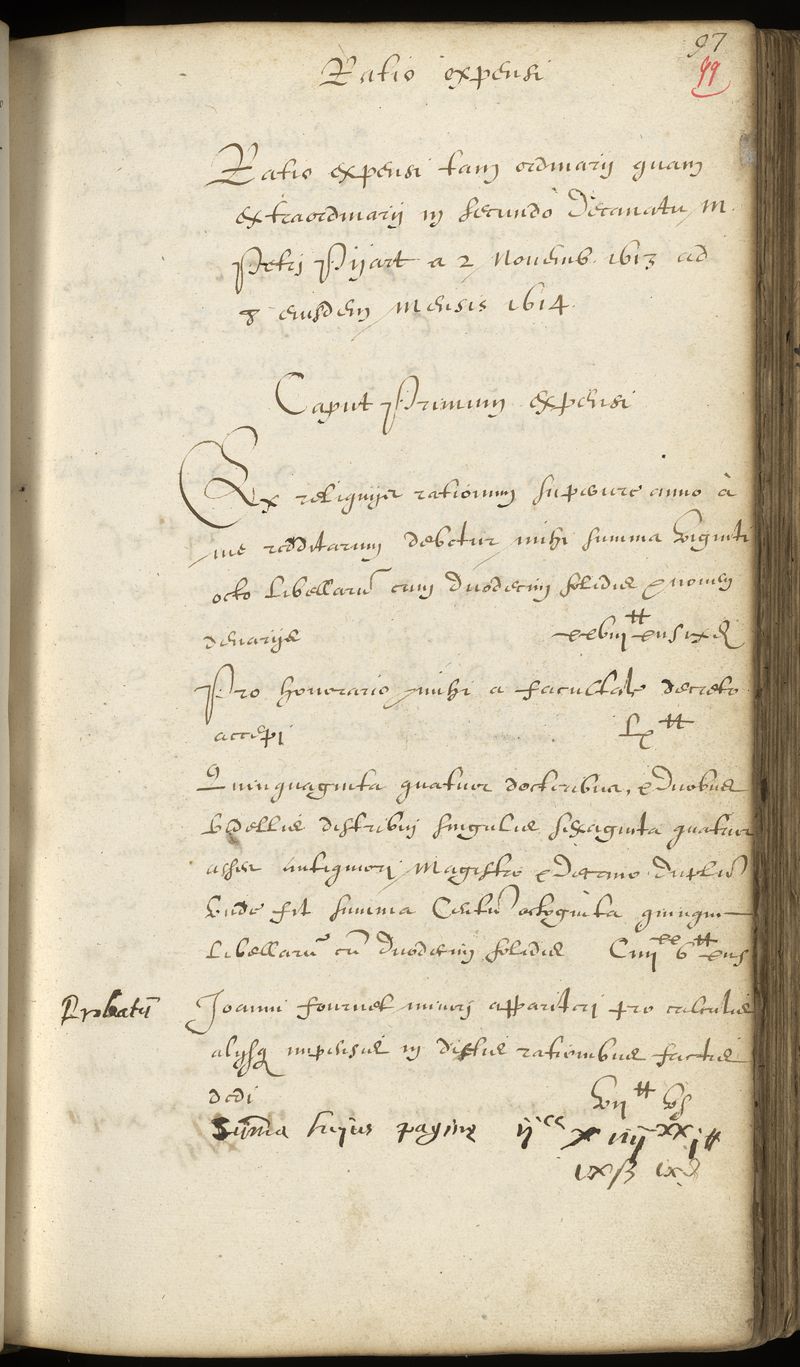 97
99
Ratio expensi
Ratio expensi tam ordinarij quam
extraordinarij in secundo Decanatu M.
Petri Pijart a 2 Novemb. 1613 ad
8 eiusdem mensis 1614.
Caput Primum expensi
Ex reliquijs rationum superiore anno à
me redditarum debetur mihi summa viginti
octo libellarũ cum duodecim solidis & novem
denarijs xxviij ₶ xij s ix d
Pro honorario mihi a facultate decreto
accepi Lx ₶
Quinquaginta quatuor doctoribus, & duobus
bidellis distribui singulis sexaginta quatuor
asses antiquiori Magistro & Decano duplũ
unde fit summa Centũ octoginta quinque
libellarũ cũ duodecim solidis C iiij xx v ₶ xij s
Probatũ
Joanni fournet minori apparitori pro calculis
alijsq impensis in dictis rationibus factis
dedi vij ₶ v s
Sum̃a hujus paginæ ij cc iiij xx j ₶
ix ß ix d